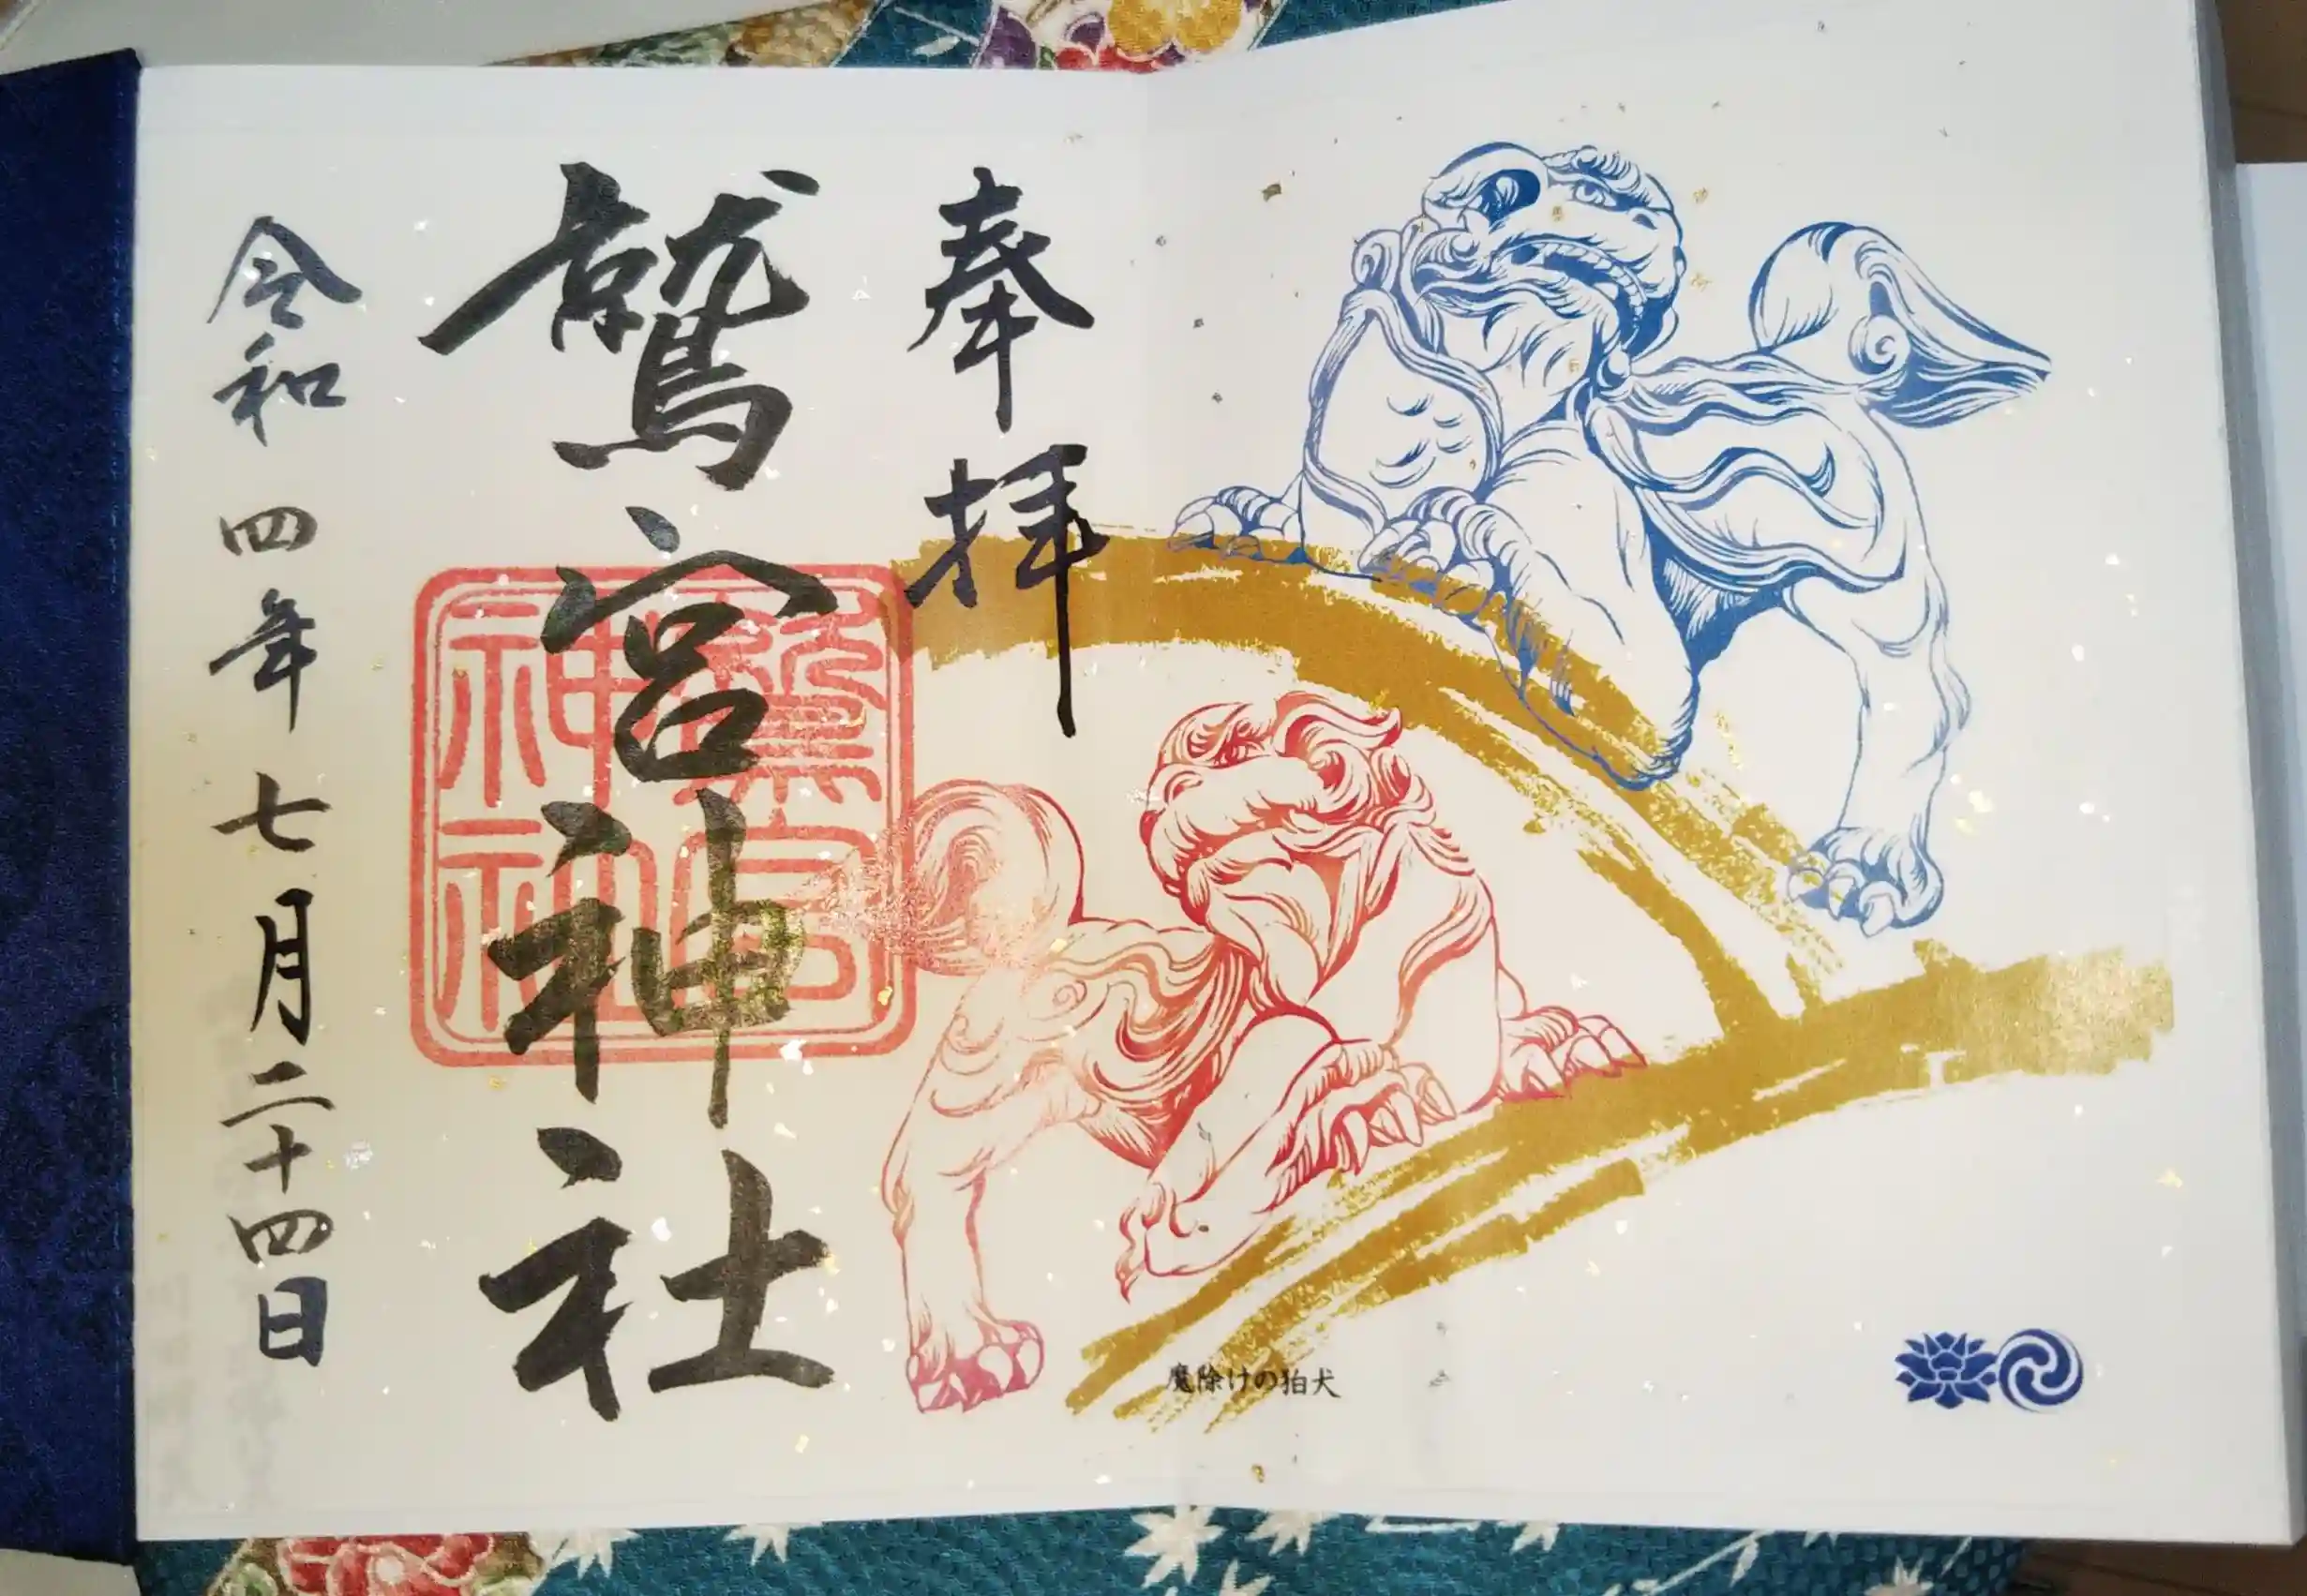 奉拝
鷲宮神社
鷲宮神社
令和四年七月二十四日
魔除けの狛犬